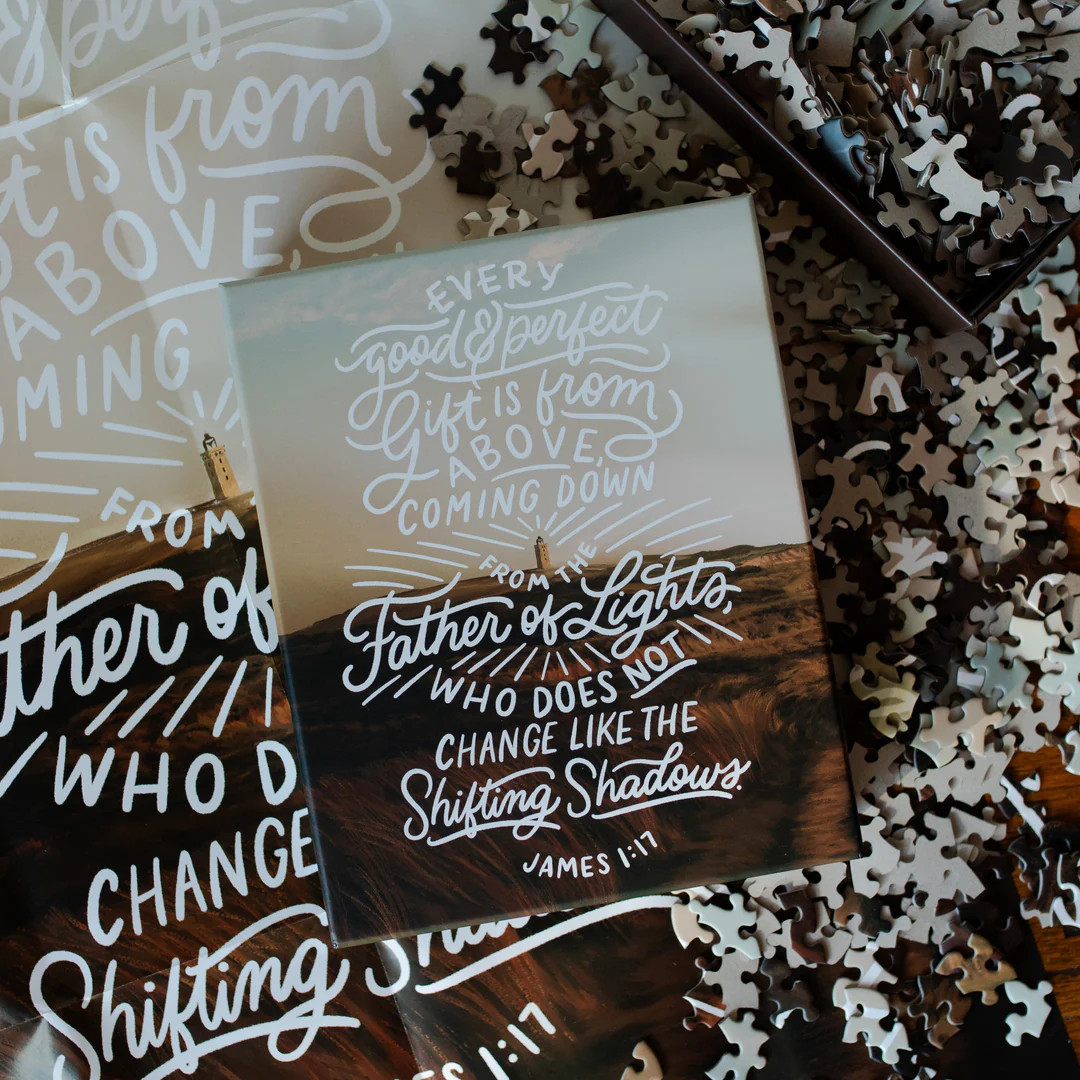 & perfe
t is from
ABOVE,
OMING
FROM
ather of
WHO D
CHANGE
Shifting Sha
ES 1:17
EVERY
good & perfect
Gift is from
ABOVE,
COMING DOWN
FROM THE
Father of Lights,
WHO DOES NOT
CHANGE LIKE THE
Shifting Shadows.
JAMES 1:17